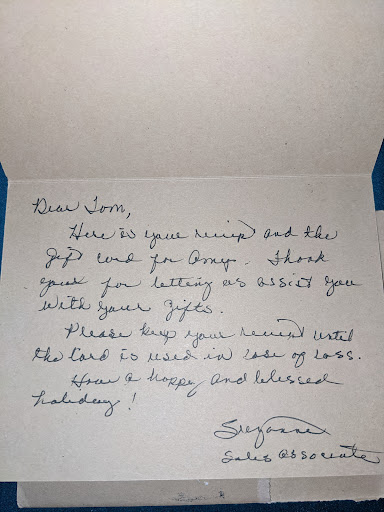 Dear Tom,
Here is your receipt and the
gift card for Amy. Thank
you for letting us assist you
with your gifts.
Please keep your receipt until
the card is used in case of loss.
Have a happy and blessed
holiday!
Suzanne
Sales Associate